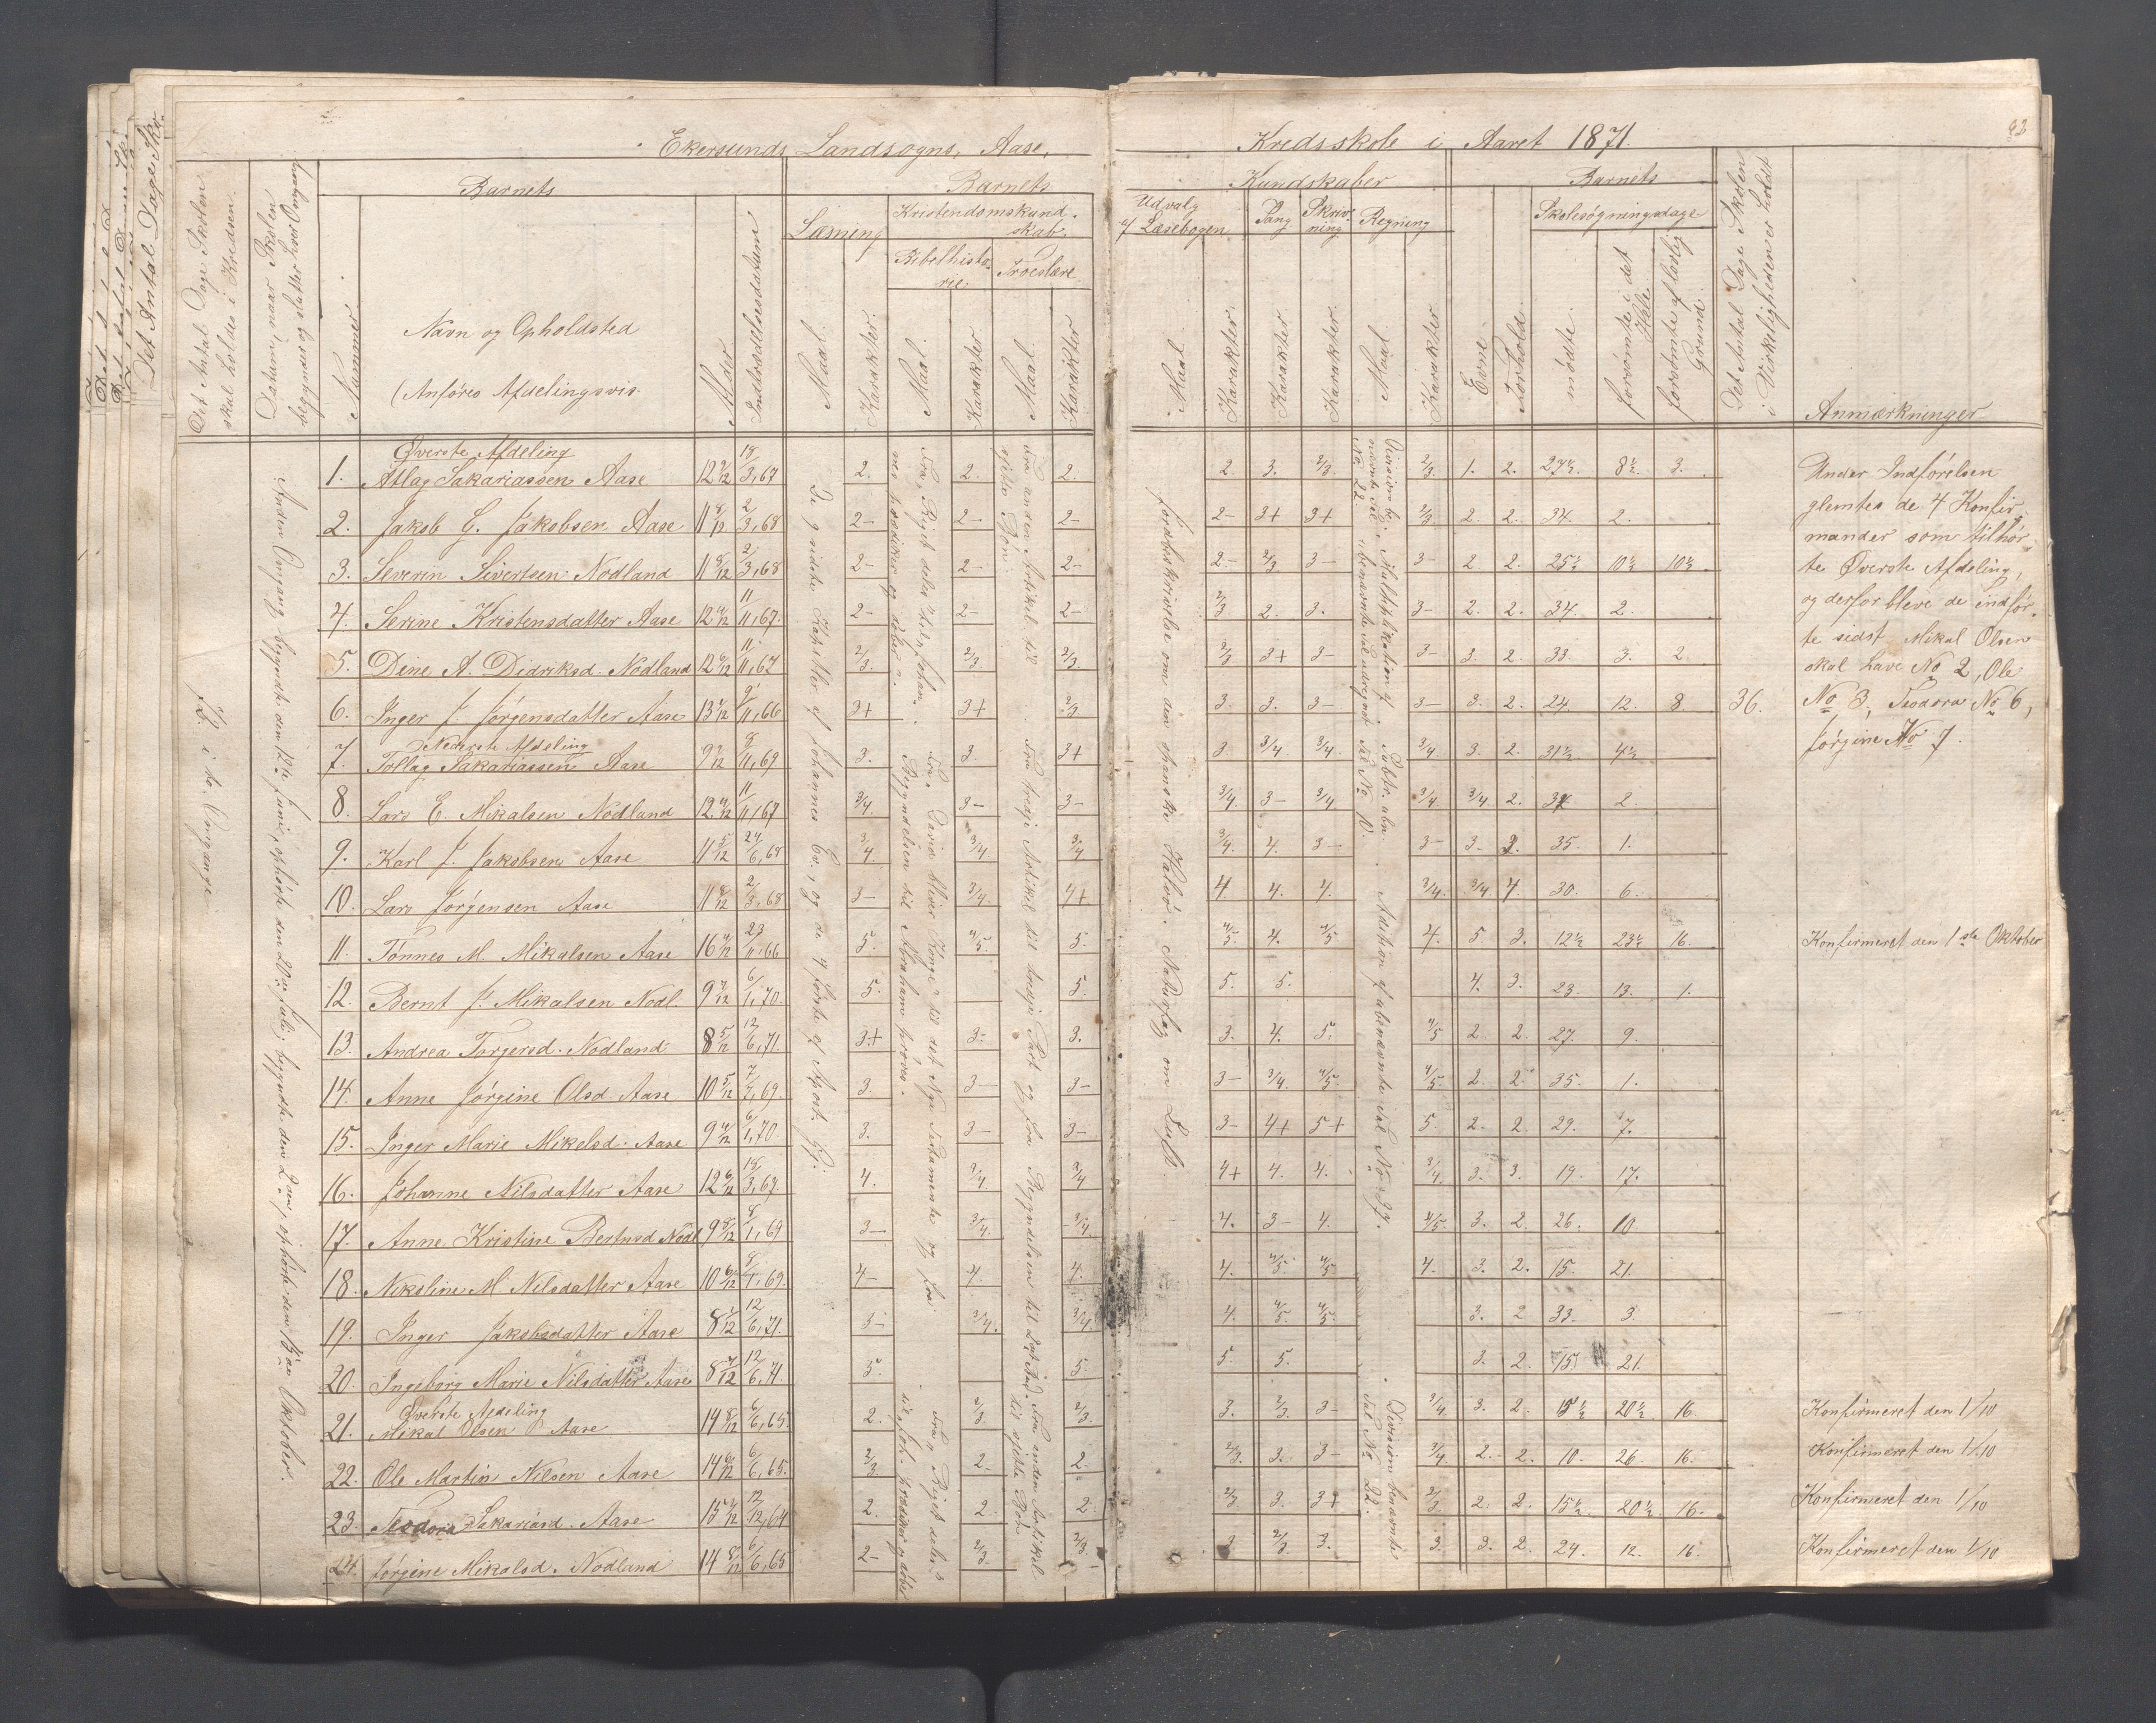 Ekersunds Landsogns, Aase, Kredsskole i Aaret 1871.
92
Det Antal Dage Sko.
Det Antal Dage Skolen skal holdes i Kredsen.
Datum, naar Skolen begyndes og slutter hver Omgang
Barnets
Nummer.
Navn og Opholdsted
(Anføres Afdelingsvis.
Alder
Indtrædelsesdatum
Barnets
Læsning
Maal.
Karakter.
Kristendomskund-
skab.
Bibelhisto-
rie.
Maal
Karakter
Troeslære
Maal
Karakter
Kundskaber
Udvalg
af Læsebogen
Maal
Karakter.
Sang
Karakter.
Skriv-
ning
Karakter.
Regning
Maal
Karakter
Barnets
Evne
Forhold.
Skolesøgningsdage
mødte.
forsømte i det Hele
forsømte af lovlig Grund.
Det Antal Dage Skolen i Virkeligheden er holdt
Anmærkninger
72 i to Omgange
Anden Omgang begyndte den 12te Juni, ophørte den 20de Juli; begyndte den 2den, ophørte den 13de Oktober.
De 9 sidste Kapitler af Johannes Ev., og de 4 første af Apost. Gj.
Fra "Riget deles" til "Johannes prædiker og døber".
Fra "David bliver Konge" til det Nye Testamente og fra Begyndelsen til Abraham prøves.
Fra anden Artikel til sjette Bøn.
forstukrivelse om den spanske Halvø. Naturfag om Luft
Division be-
nævnte Tal
No 22.
Addition af ubenævnte Tal No 39.
Division benævnte
Tal No 22.
Øverste Afdeling
1. Atlag Sakariassen Aase 12 9/12 18/3,67 2. 2. 2. 2. 3. 2/3 2/3. 1. 2. 27½. 8½. 3.
2. Jakob G. Jakobsen Aase 11 8/12 2/3,68 2- 2- 2- 2- 3+ 3+ 2/3. 2. 2. 34. 2.
3. Severin Sivertsen Nodland 11 8/12 2/3,68 2- 2- 2- 2- 2/3 3- 3- 2 2. 25½ 10½ 10½
4. Serine Kristensdatter Aase 12 4/12 11/11,67. 2- 2- 2- 2/3 2. 3. 3- 2. 2. 34. 2.
5. Dine A. Didriksd. Nodland 12 6/12 11/11,67 2/3. 2/3. 2/3 2/3. 3+ 3- 3- 3. 2. 33. 3. 2
6. Inger J. Jørgensdatter Aase 13 4/12 9/11,66 3+ 3+ 2/3 3. 3. 3- 3- 3. 2. 24. 12. 8 36.
Nederste Afdeling
7. Tollag Sakariassen Aase 9 9/12 8/11,69 3. 3. 3+ 3. 3/4 3/4. 3/4 3. 2. 31½ 4½
8. Lars E. Mikalsen Nodland 12 4/12 11/11,67 3/4. 3- 3- 3/4. 3- 3/4 3/4 3/4 2. 34. 2.
9. Karl J. Jakobsen Aase 11 5/12 24/6,68 3/4. 3/4 3/4 3/4. 4. 3- 3- 3. 2. 35. 1.
10. Lars Jørgensen Aase 11 8/12 2/3,68 3- 3/4. 4+ 4. 4. 4. 3/4. 3/4 4. 30. 6.
11. Tønnes M. Mikalsen Aase 16 4/12 23/11,66 5. 4/5. 5. 4/5. 4. 4/5 4. 5. 3. 12½ 23½ 16. Konfirmeret den 1ste Oktober
12. Bernt J. Mikalsen Nodl. 9 7/12 6/1,70. 5. 5. 5. 5. 4. 3. 23. 13. 1.
13. Andrea Torgersd. Nodland 8 5/12 12/6,71. 3+ 3- 3. 3. 4. 5. 4/5 2. 2. 27. 9.
14. Anne Jørgine Olsd. Aase 10 5/12 7/7,69. 3. 3- 3- 3- 3/4. 4/5. 4/5. 2. 2. 35. 1.
15. Inger Marie Mikelsd. Aase 9 4/12 6/1,70. 3. 3- 3- 3- 4+ 5+ 5. 2. 2. 29. 7.
16. Johanne Nilsdatter Aase 12 6/12 18/3,67. 4. 3/4. 3/4 4+ 4. 4. 3/4. 3. 3. 19. 17.
17. Anne Kristine Berntsd Nodl 9 8/12 8/1,69 3- 3/4. 3/4 4. 3- 4. 4/5. 3. 2. 26. 10.
18. Nikoline M. Nilsdatter Aase 10 6/12 8/1,69. 4- 4. 4. 4. 4/5. 4/5. 4. 3. 2. 15. 21.
19. Inger Jakobsdatter Aase 8 1/12 12/6,71. 3- 3/4. 3/4 4. 4/5. 4/5. 3. 2 33. 3.
20. Ingeborg Marie Nilsdatter Aase 8 4/12 12/6,71. 5. 5. 5. 5. 3. 2. 15. 21.
Øverste Afdeling
21. Mikal Olsen Aase 14 8/12 6/6,65. 2. 2/3. 2/3. 3. 2/3. 3- 3/4 3. 2. 15½ 20½ 16. Konfirmeret den 1/10
22. Ole Martin Nilsen Aase 14 6/12 6/6,65. 2/3. 2. 2. 2/3. 3. 3- 3/4 2. 2. 10. 26. 16. Konfirmeret den 1/10
23. Teodora Sakariasd. Aase 15 1/12 12/12,64 2. 2. 2. 2/3. 3. 3+ 2/3. 2. 2. 15½. 20½. 16. Konfirmeret den 1/10
24. Jørgine Mikalsd. Nodland 14 8/12 6/6,65 2- 2/3. 2/3. 3. 2/3. 3. 3. 3. 2. 24. 12. 16. Konfirmeret den 1/10
Under Indførelsen
glemtes de 4 Konfir-
mander som tilhør-
te Øverste Afdeling,
og derfor bleve de indfør-
te sidst Mikal Olsen
skal have No 2, Ole
No 3, Teodora No 6,
Jørgine No 7.